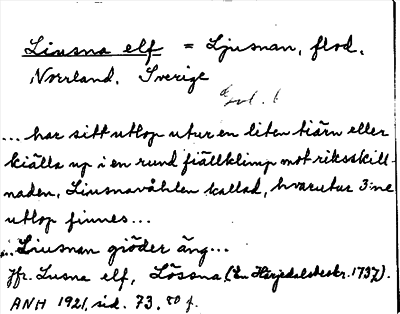 Liusna elf = Ljusnan, flod,
Norrland, Sverige
... har sitt utlop utur en liten tiärn eller
kiälla up i en rund fiällklimp mot riksskill-
naden, Liusnavåhlen kallad, hvarutur 3:ne
utlop finnes...
... Liusnan giöder äng...
Jfr. Lusna elf, Lössna (En Härjedalsbeskr. 1737).
ANH 1921, sid. 73, 80 f.